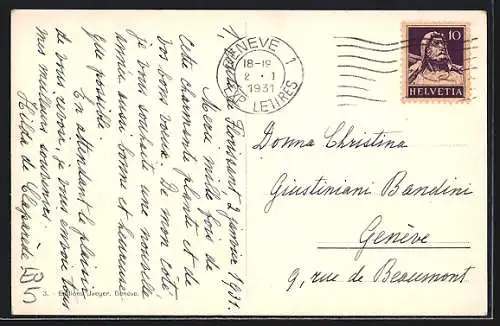 1, route de Florissant 2 janvier 1931.
Merci mille fois de
cette charmante plante et de
vos bons vœux. De mon côté
je vous souhaite une nouvelle
année aussi bonne et heureuse
que possible.
En attendant le plaisir
de vous revoir, je vous envoie tous
mes meilleurs
Hilda de Claparède
GENEVE 1
18-19
2. I
1931
EXP. LETTRES
10
HELVETIA
Donna Christina
Giustiniani Bandini
Genève
9, rue de Beaumont
3. - Editions Jaeger, Genève.